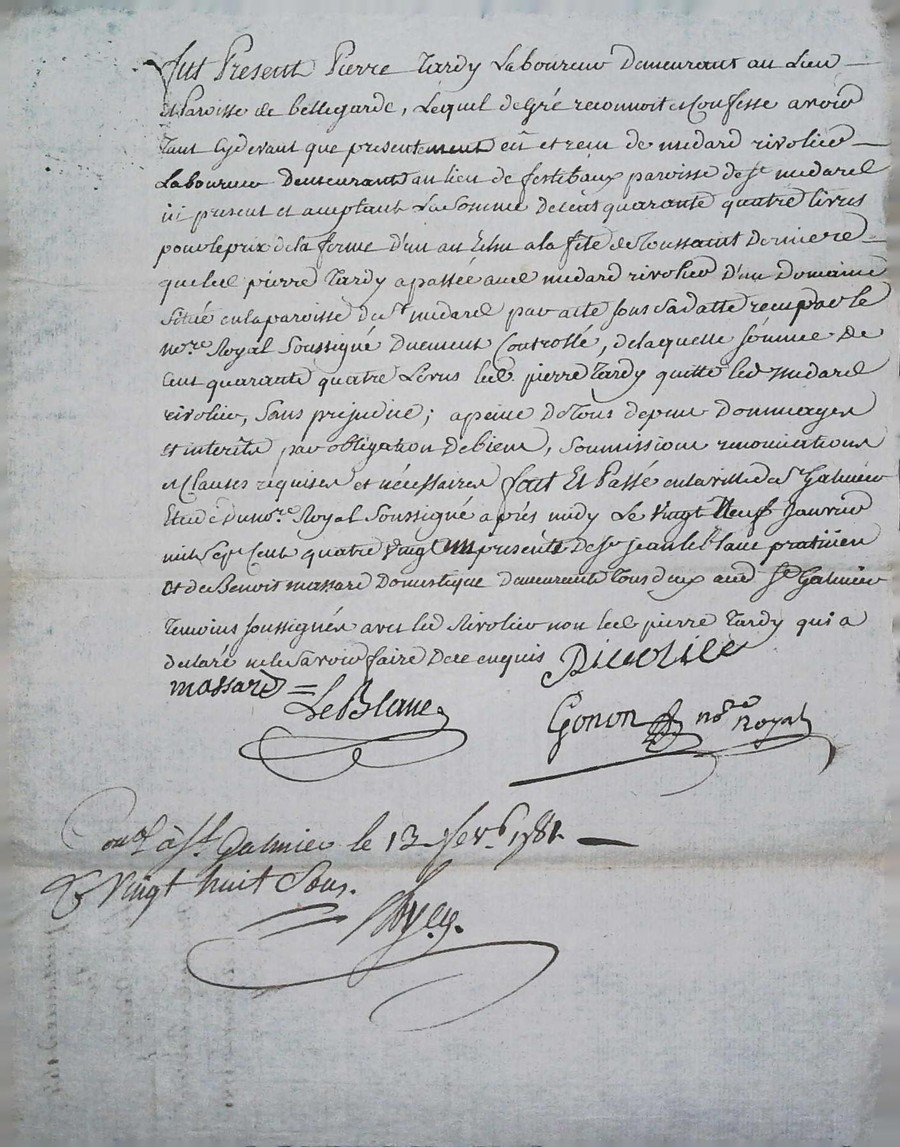 Fut Present Pierre Tardy Laboureur Demeurant au Lieu
et Paroisse de bellegarde, Lequel de gré reconnoit et Confesse avoir
Tant Cydevant que presentement eû et reçu de medard rivolier
Laboureur Demeurant au lieu de paroisse de st medard
ici present et aceptant La Somme De cent quarante quatre livres
pour le prix de la ferme D'un an Echu a la fête de Toussaint Derniere
que led pierre Tardy a passée aud medard rivolier D'un Domaine
Situé en la paroisse de st medard par acte sous Sa datte reçu par le
nore Royal Soussigné Duement Controllé, de laquelle somme De
Cent quarante quatre Livres led pierre Tardy quitte led medard
rivolier, Sans prejudice; a peine De Tous depens Dommages
et interets par obligation De biens, Soumissions renonciations
et Clauses requises et nécessaires fait Et Passé en la ville de st Galmier
Etude du nore Royal Soussigné après midy Le Vingt Neuf Janvier
mil Sept Cent quatre Vingt un presents De sr jean le blanc praticien
et de Benoit massard Domestique Demeurants Tous deux aud st Galmier
Temoins soussignés avec led Rivolier non led pierre Tardy qui a
declaré ne le Savoir faire De ce enquis Rivolier
massard = LeBlanc
Gonon nore Royal
Conlé à st Galmier le 13 fevr 1781
R Vingt huit Sous.